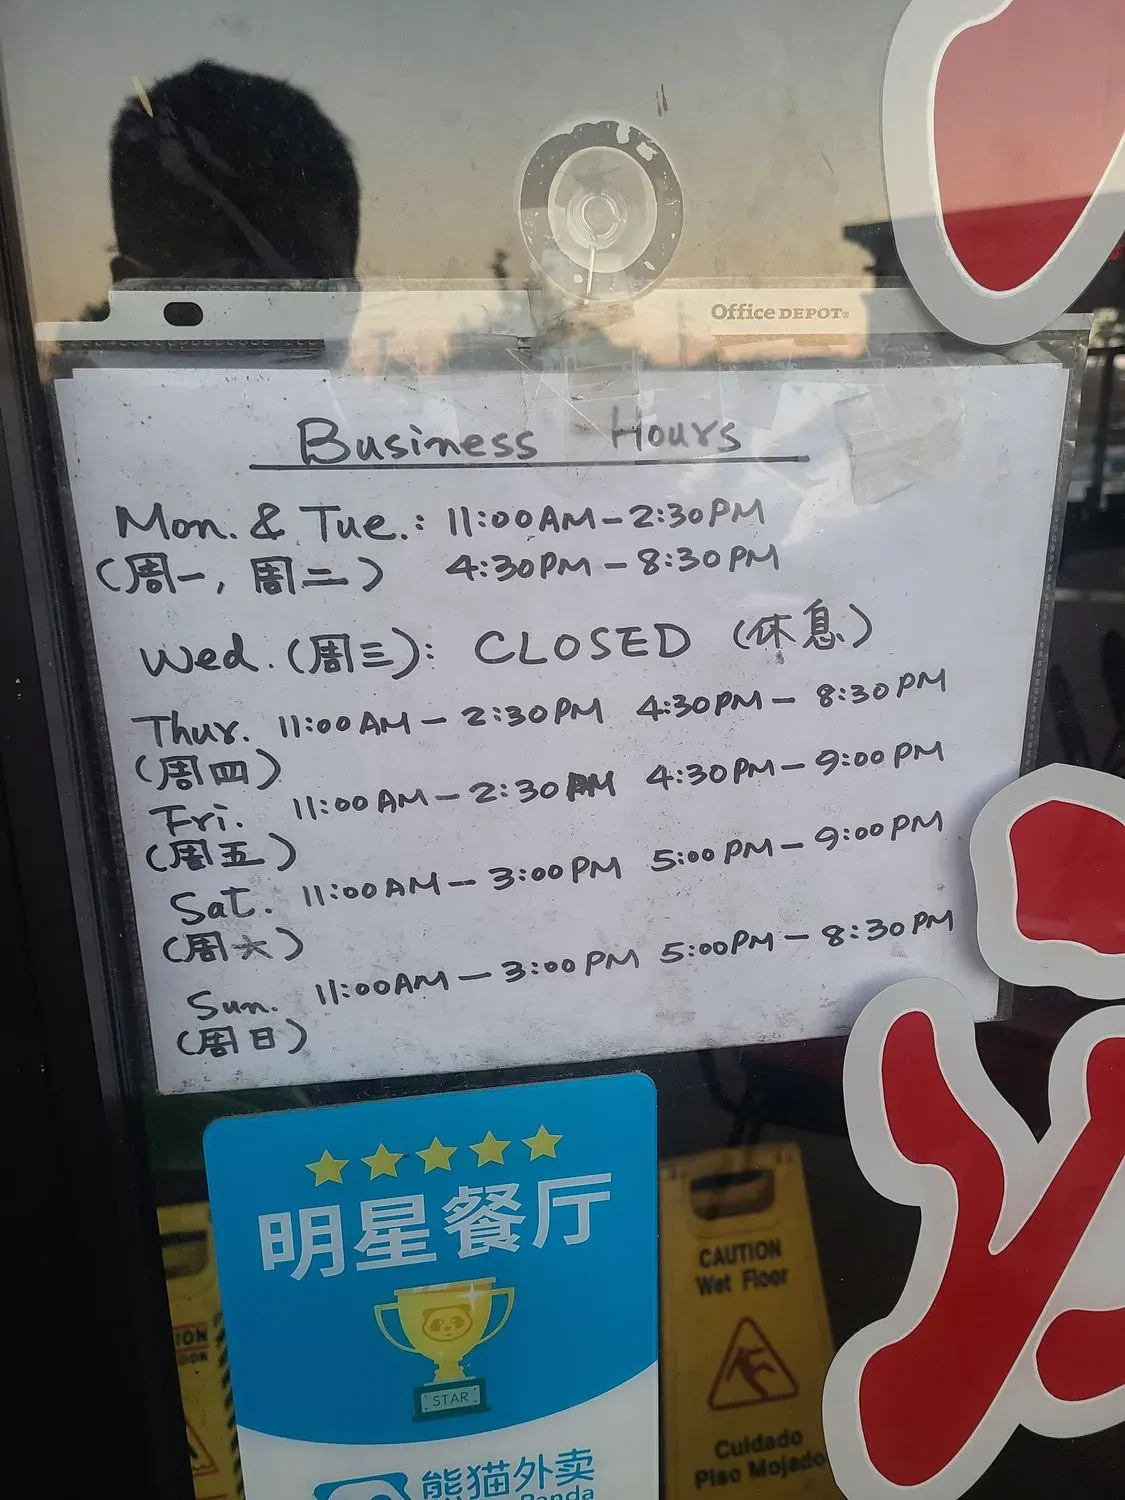 Office DEPOT®
Business Hours
Mon. & Tue.: 11:00AM-2:30PM
(周一, 周二) 4:30PM-8:30PM
Wed. (周三): CLOSED (休息)
Thur. 11:00AM-2:30PM 4:30PM-8:30PM
(周四)
Fri. 11:00AM-2:30PM 4:30PM-9:00PM
(周五)
Sat. 11:00AM-3:00PM 5:00PM-9:00PM
(周六)
Sun. 11:00AM-3:00PM 5:00PM-8:30PM
(周日)
明星餐厅
STAR
熊猫外卖
Panda
CAUTION
Wet Floor
Cuidado
Piso Mojado